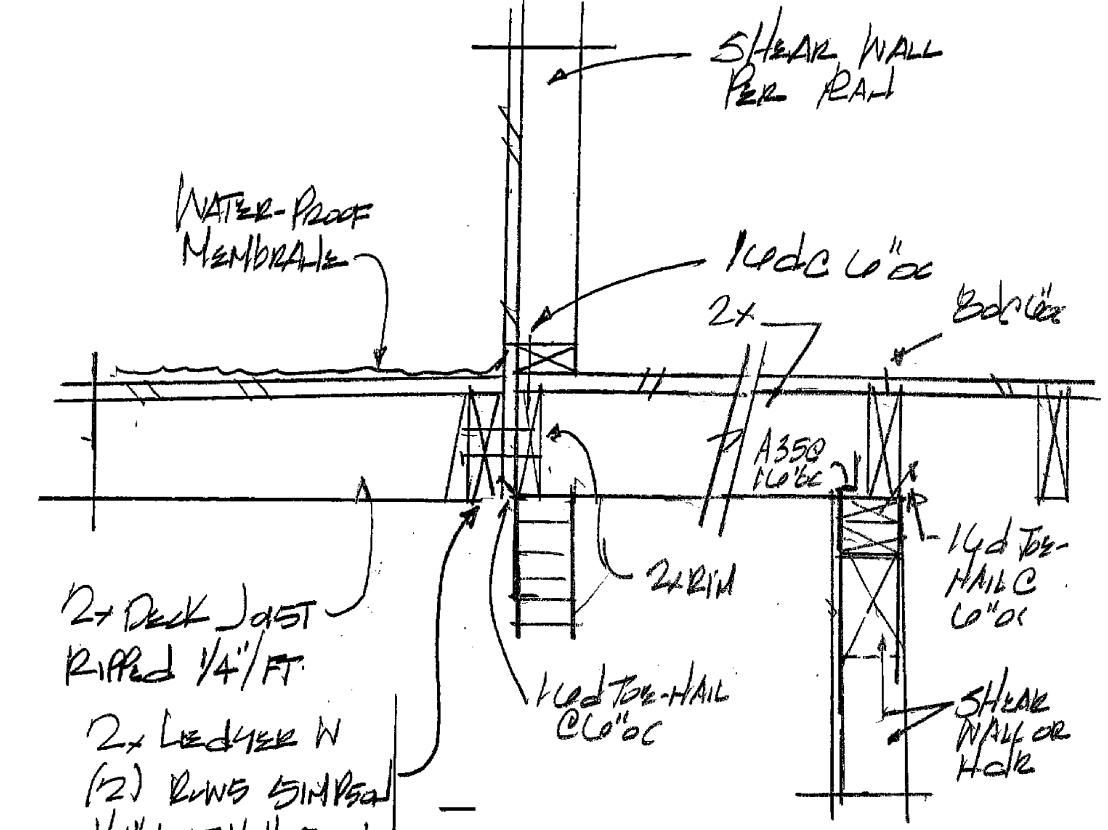 SHEAR WALL
PER PLAN
WATER-PROOF
MEMBRANE
16d@ 6"oc
2x
8d@6"oc
A35@
16"oc
16d TOE-
NAIL @
6"oc
2x RIM
2x DECK JOIST
RIPPED 1/4"/FT.
16d TOE-NAIL
@ 6"oc
SHEAR
WALL OR
HDR
2x LEDGER W
(2) ROWS SIMPSON